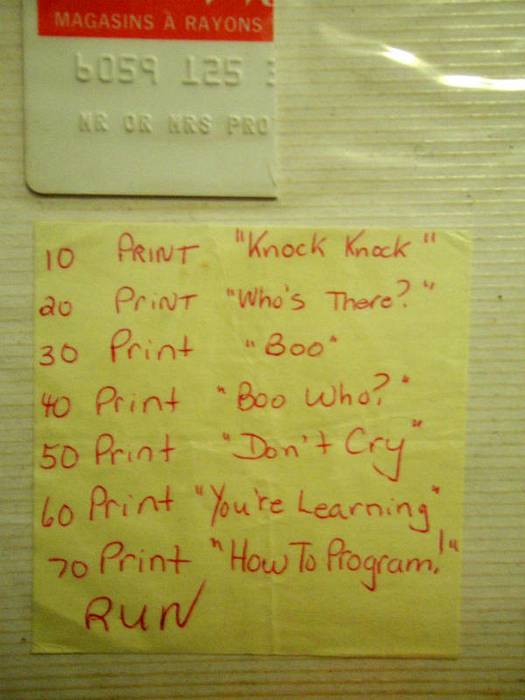 MAGASINS À RAYONS
6059 125
MR OR MRS PRO
10 PRINT "Knock Knock"
20 PRINT "Who's There?"
30 Print "Boo"
40 Print "Boo Who?"
50 Print "Don't Cry"
60 Print "You're Learning"
70 Print "How To Program!"
RUN